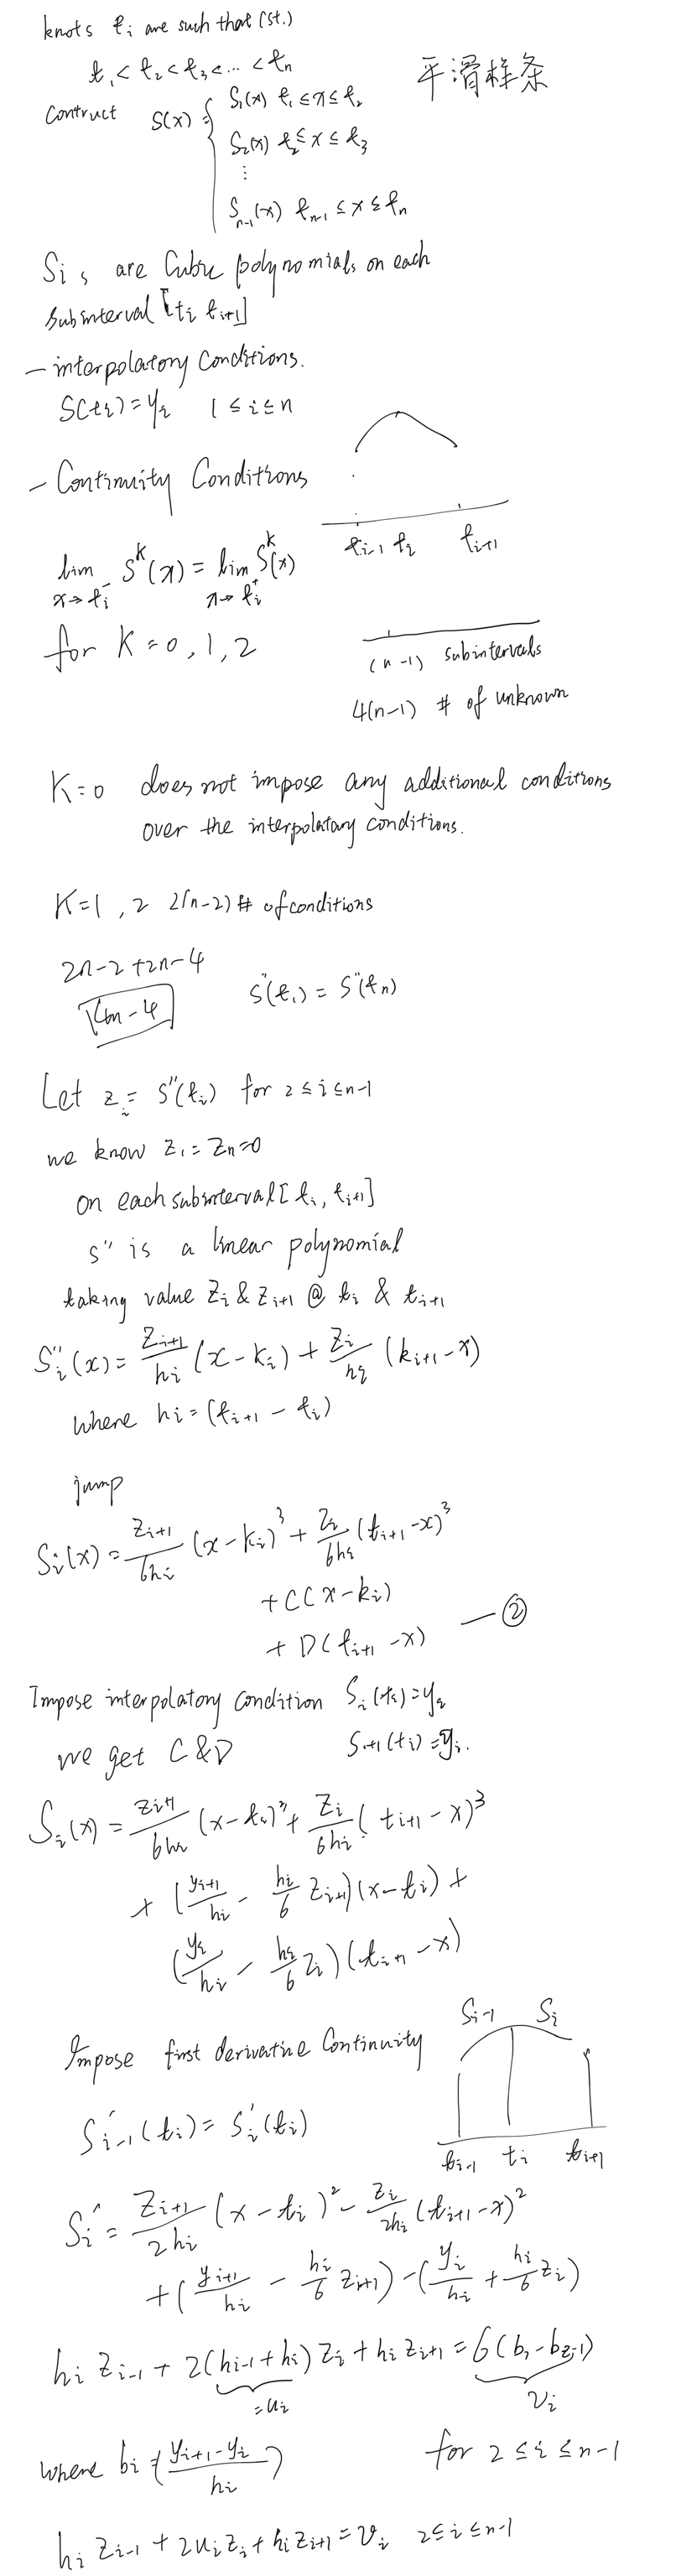 knots tᵢ are such that (st.)
t₁ < t₂ < t₃ < ... < tₙ
平滑样条
Contruct S(x) = { S₁(x) t₁ ≤ x ≤ t₂
S₂(x) t₂ ≤ x ≤ t₃
⋮
Sₙ₋₁(x) tₙ₋₁ ≤ x ≤ tₙ
Sᵢ s are Cubic polynomials on each
Subinterval [tᵢ tᵢ₊₁]
- interpolatory Conditions.
S(tᵢ) = yᵢ 1 ≤ i ≤ n
- Continuity Conditions
tᵢ₋₁ tᵢ tᵢ₊₁
lim x→tᵢ⁻ Sᴷ(x) = lim x→tᵢ⁺ Sᴷ(x)
for K = 0, 1, 2
(n-1) subintervals
4(n-1) # of unknown
K=0 does not impose any additional conditions
over the interpolatory conditions.
K=1, 2 2(n-2) # of conditions
2n-2+2n-4
4n-4
S''(t₁) = S''(tₙ)
Let zᵢ = S''(tᵢ) for 2 ≤ i ≤ n-1
we know z₁ = zₙ = 0
on each subinterval [tᵢ, tᵢ₊₁]
S'' is a linear polynomial
taking value zᵢ & zᵢ₊₁ @ tᵢ & tᵢ₊₁
Sᵢ''(x) = zᵢ₊₁/hᵢ (x-kᵢ) + zᵢ/hᵢ (kᵢ₊₁-x)
where hᵢ = (tᵢ₊₁ - tᵢ)
jump
Sᵢ(x) = zᵢ₊₁/6hᵢ (x-kᵢ)³ + zᵢ/6hᵢ (tᵢ₊₁-x)³
+ C(x-kᵢ)
+ D(tᵢ₊₁-x) —②
Impose interpolatory condition Sᵢ(tᵢ)=yᵢ
we get C&D Sᵢ₊₁(tᵢ)=yᵢ.
Sᵢ(x) = zᵢ₊₁/6hᵢ (x-tᵢ)³ + zᵢ/6hᵢ (tᵢ₊₁-x)³
+ (yᵢ₊₁/hᵢ - hᵢ/6 zᵢ₊₁)(x-tᵢ) +
(yᵢ/hᵢ - hᵢ/6 zᵢ)(tᵢ₊₁-x)
Sᵢ₋₁ Sᵢ
Impose first derivative Continuity
S'ᵢ₋₁(tᵢ) = S'ᵢ(tᵢ)
tᵢ₋₁ tᵢ tᵢ₊₁
Sᵢ' = zᵢ₊₁/2hᵢ (x-tᵢ)² - zᵢ/2hᵢ (tᵢ₊₁-x)²
+ (yᵢ₊₁/hᵢ - hᵢ/6 zᵢ₊₁) - (yᵢ/hᵢ + hᵢ/6 zᵢ)
hᵢ zᵢ₋₁ + 2(hᵢ₋₁+hᵢ) zᵢ + hᵢ zᵢ₊₁ = 6(bᵢ-bᵢ₋₁)
=uᵢ vᵢ
where bᵢ = (yᵢ₊₁-yᵢ/hᵢ) for 2 ≤ i ≤ n-1
hᵢ zᵢ₋₁ + 2uᵢ zᵢ + hᵢ zᵢ₊₁ = vᵢ 2 ≤ i ≤ n-1